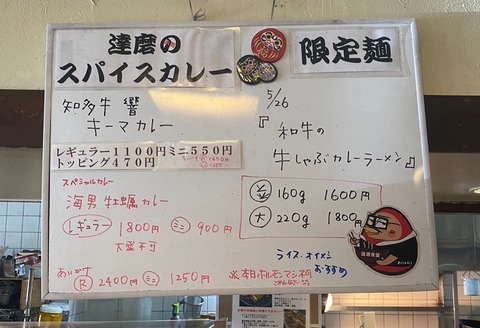 達磨の
スパイスカレー
知多牛 響
キーマカレー
レギュラー1100円ミニ550円
トッピング470円
スペシャルカレー
海男 牡蠣カレー
レギュラー 1800円 ミニ 900円
大盛不可
あいがけ
R 2400円 ミニ 1250円
限定麺
5/26
『和牛の
牛しゃぶカレーラーメン』
並 160g 1600円
大 220g 1800円
ライス、オイメシ
おすすめ
※本日ホルモンマシ不可
ごめんなさい